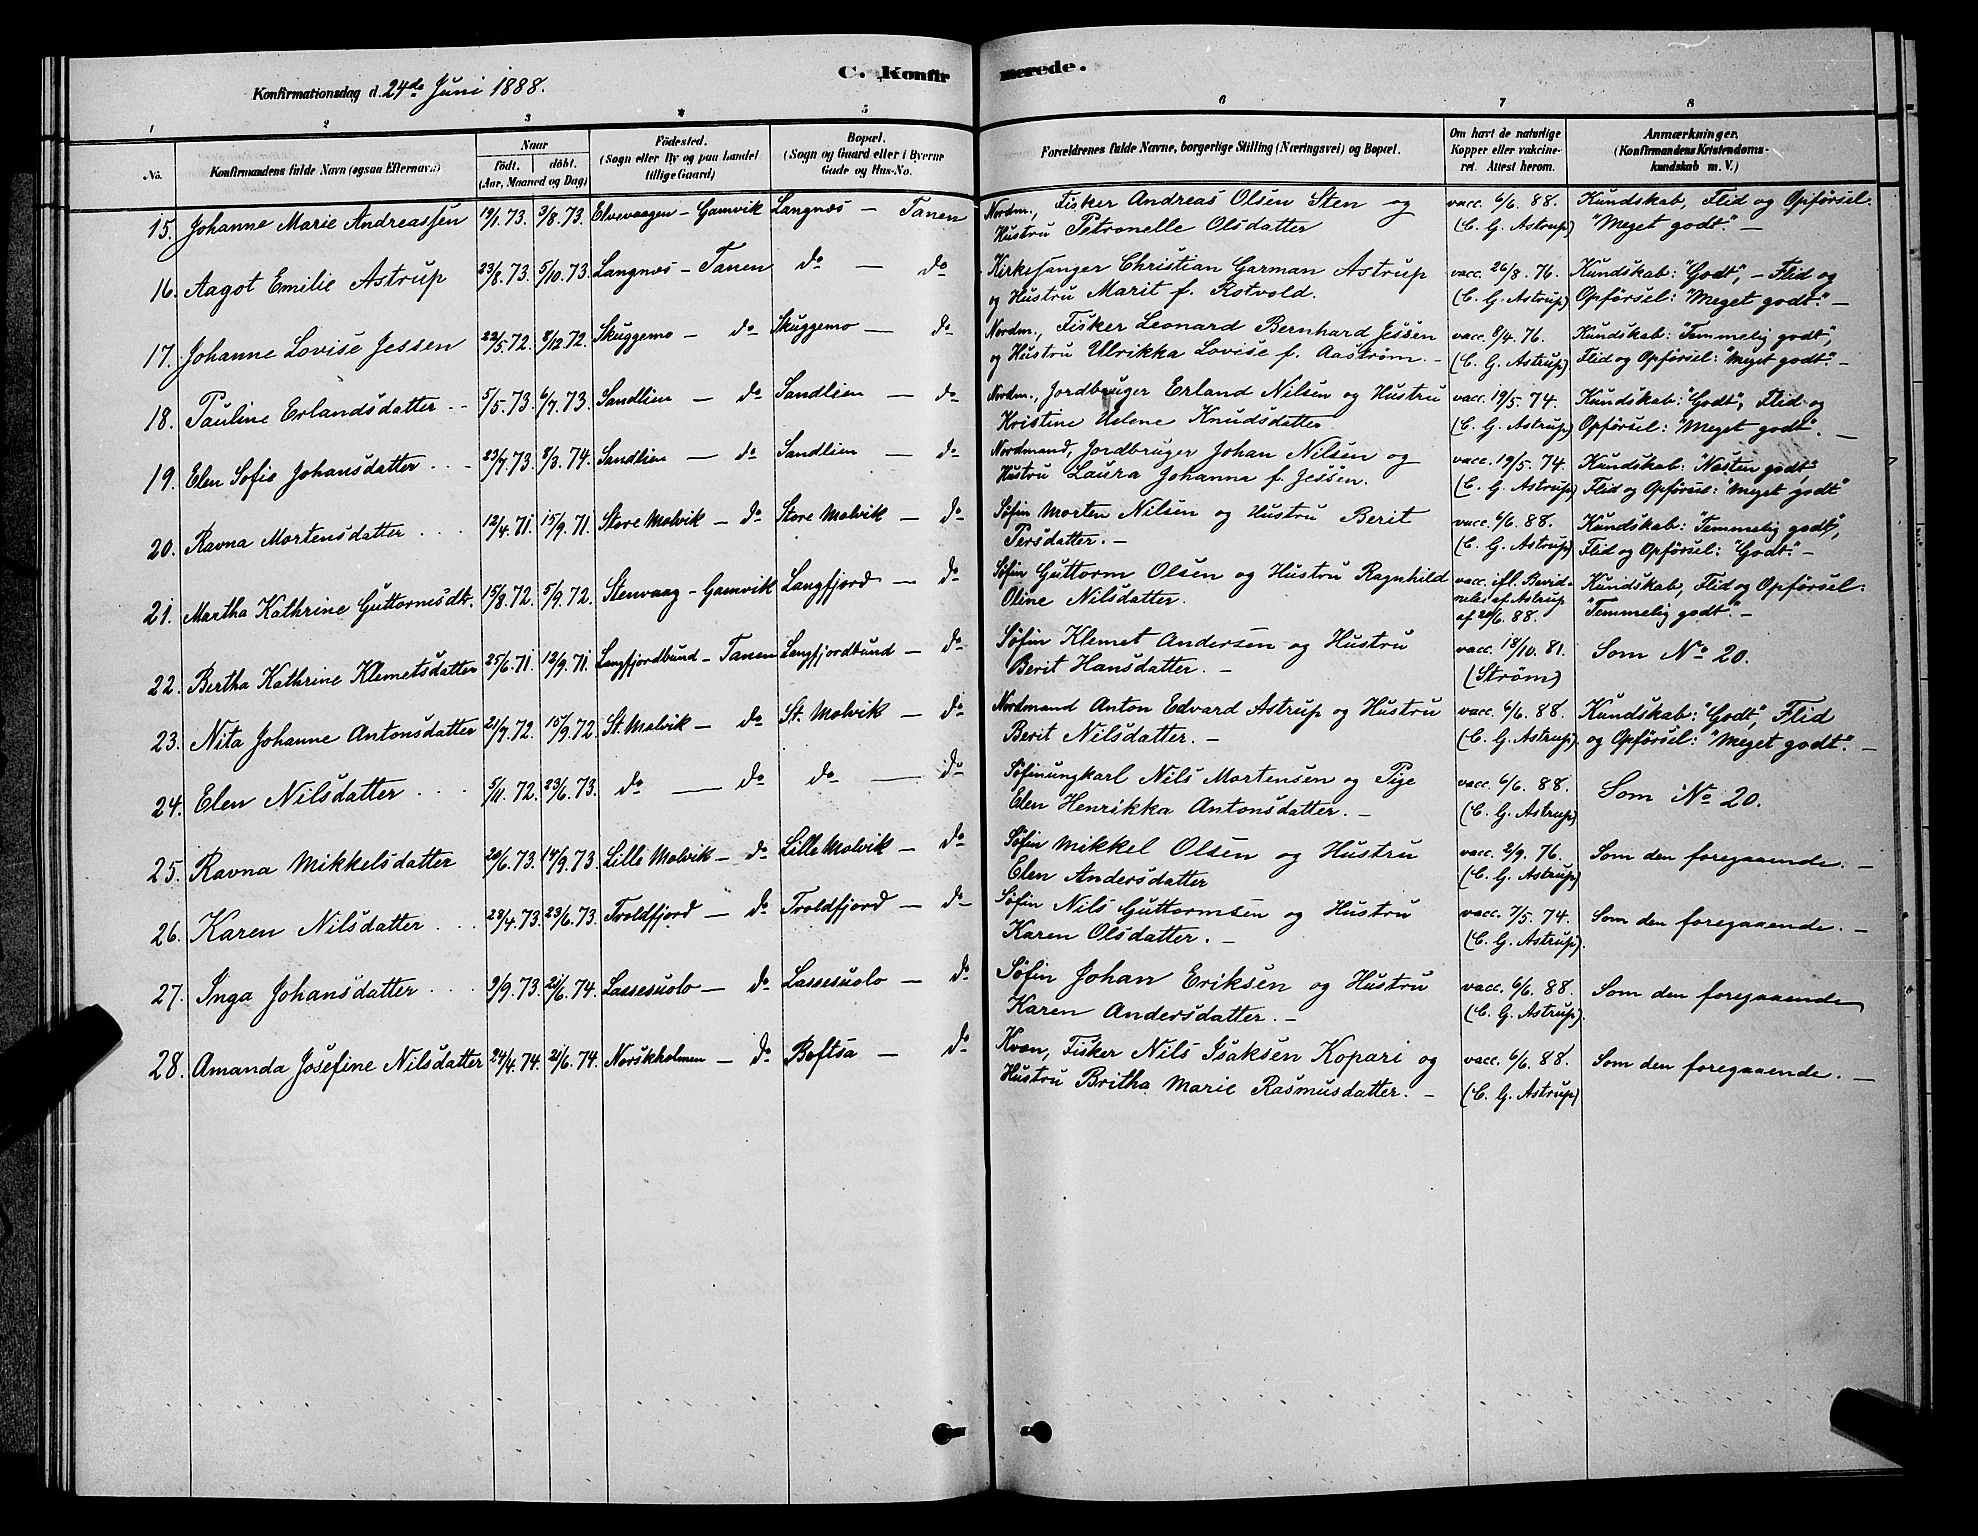 C. Konfirmerede.
Konfirmationsdag d. 24de Juni 1888.
1 2 3 4 5 6 7 8
No. Konfirmandens fulde Navn (ogsaa Efternavn.) Naar Födt. döbt. (Aar, Maaned og Dag) Födested. (Sogn eller By og paa Landet tillige Gaard) Bopæl. (Sogn og Gaard eller i Byerne Gade og Hus-No. Forældrenes fulde Navne, borgerlige Stilling (Næringsvei) og Bopæl. Om havt de naturlige Kopper eller vakcineret. Attest herom. Anmærkninger. (Konfirmandens Kristendomskundskab m. V.)
15. Johanne Marie Andreassen 19/1.73. 3/8.73. Elvevaagen - Gamvik Langnæs - Tanen Nordm., Fisker Andreas Olsen Sten og vacc. 6/6. 88. Kundskab, Flid og Opförsel.
Hustru Petronelle Olsdatter (C. G. Astrup) "Meget godt". -
16. Aagot Emilie Astrup 23/8.73. 5/10.73. Langnæs - Tanen do - do Kirkesanger Christian Garman Astrup vacc. 26/8. 76. Kundskab: "Godt", - Flid og
og Hustru Marit f. Rotvold. (C. G. Astrup) Opförsel: "Meget godt". -
17. Johanne Lovise Jessen 22/5.72. 8/12.72. Skuggemo - do Skuggemo - do Nordm., Fisker Leonard Bernhard Jessen vacc. 8/4. 76. Kundskab: "Temmelig godt",
og Hustru Ulrikka Lovise f. Aaström. - (C. G. Astrup) Flid og Opförsel: "Meget godt". -
18. Pauline Erlandsdatter . . 5/5.73. 6/7.73. Sandlien - do Sandlien - do Nordm., Jordbruger Erland Nilsen og Hustru vacc. 19/5. 74. Kundskab: "Godt", Flid og
Kristine Helene Knudsdatter (C. G. Astrup) Opförsel: "Meget godt". -
19. Elen Sofie Johansdatter . . . 23/7.73. 8/3.74. Sandlien - do Sandlien - do Nordmand, Jordbruger Johan Nilsen og vacc. 19/5. 74. Kundskab: "Næsten godt",
Hustru Laura Johanna f. Jessen. (C. G. Astrup) Flid og Opförsel: "Meget godt"
20. Ravna Mortensdatter . . . 12/4.71. 15/9.71. Store Molvik - do Store Molvik - do Söfin Morten Nilsen og Hustru Berit vacc. 6/6. 88. Kundskab: "Temmelig godt",
Persdatter. - (C. G. Astrup) Flid og Opförsel: "Godt". -
21. Martha Kathrine Guttormsdtr. 15/8.72. 5/9.72. Stenvaag - Gamvik Langfjord - do Söfin Guttorm Olsen og Hustru Ragnhild vacc. ifl. Bevid- Kundskab, Flid og Opförsel.
Oline Nilsdatter. nelse af Astrup "Temmelig godt". -
af 20/6. 88.
22. Bertha Kathrine Klemetsdatter 25/6.71. 12/9.71. Langfjordbund - Tanen Langfjordbund - do Söfin Klemet Andersen og Hustru vacc. 18/10. 81. Som No 20.
Berit Hansdatter. - (Ström)
23. Nita Johanne Antonsdatter 21/7.72. 15/9.72. St. Molvik - do St. Molvik - do Nordmand Anton Edvard Astrup og Hustru vacc. 6/6. 88. Kundskab: "Godt", Flid
Berit Nilsdatter. - (C. G. Astrup). og Opförsel: "Meget godt". -
24. Elen Nilsdatter . . . 5/11.72. 23/6.73. do - do do - do Söfinungkarl Nils Mortensen og Pige vacc. 6/6. 88. Som No 20.
Elen Henrikka Antonsdatter. - (C. G. Astrup)
25. Ravna Mikkelsdatter 20/6.73. 14/9.73. Lille Molvik - do Lille Molvik - do Söfin Mikkel Olsen og Hustru vacc. 2/9. 76. Som den foregaaende. -
Elen Andersdatter (C. G. Astrup)
26. Karen Nilsdatter . . . 28/4.73. 23/6.73. Troldfjord - do Troldfjord - do Söfin Nils Guttormsen og Hustru vacc. 7/5. 74. Som den foregaaende. -
Karen Olsdatter. - (C. G. Astrup).
27. Inga Johansdatter . . . 2/9.73. 21/6.74. Lassesuolo - do Lassesuolo - do Söfin Johan Eriksen og Hustru vacc. 6/6. 88. Som den foregaaende
Karen Andersdatter. - (C. G. Astrup).
28. Amanda Josefine Nilsdatter 24/4.74. 21/6.74. Norskholmen - do Boftsa - do Kvæn, Fisker Nils Isaksen Kopari og vacc. 6/6. 88. Som den foregaaende. -
Hustru Britha Marie Rasmusdatter. - (C. G. Astrup)